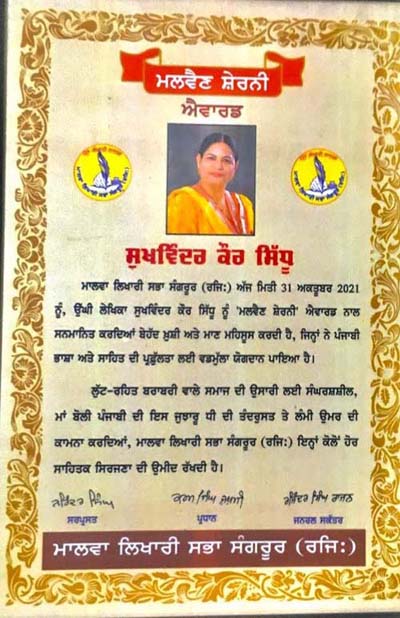 ਮਲਵੈਣ ਸ਼ੇਰਨੀ
ਐਵਾਰਡ
ਸੁਖਵਿੰਦਰ ਕੌਰ ਸਿੱਧੂ
ਮਾਲਵਾ ਲਿਖਾਰੀ ਸਭਾ ਸੰਗਰੂਰ (ਰਜਿ:) ਅੱਜ ਮਿਤੀ 31 ਅਕਤੂਬਰ 2021
ਨੂੰ, ਉੱਘੀ ਲੇਖਿਕਾ ਸੁਖਵਿੰਦਰ ਕੌਰ ਸਿੱਧੂ ਨੂੰ 'ਮਲਵੈਣ ਸ਼ੇਰਨੀ' ਐਵਾਰਡ ਨਾਲ
ਸਨਮਾਨਿਤ ਕਰਦਿਆਂ ਬੇਹੱਦ ਖ਼ੁਸ਼ੀ ਅਤੇ ਮਾਣ ਮਹਿਸੂਸ ਕਰਦੀ ਹੈ, ਜਿਨ੍ਹਾਂ ਨੇ ਪੰਜਾਬੀ
ਭਾਸ਼ਾ ਅਤੇ ਸਾਹਿਤ ਦੀ ਪ੍ਰਫੁੱਲਤਾ ਲਈ ਵਡਮੁੱਲਾ ਯੋਗਦਾਨ ਪਾਇਆ ਹੈ।
ਲੁੱਟ-ਰਹਿਤ ਬਰਾਬਰੀ ਵਾਲੇ ਸਮਾਜ ਦੀ ਉਸਾਰੀ ਲਈ ਸੰਘਰਸ਼ਸ਼ੀਲ,
ਮਾਂ ਬੋਲੀ ਪੰਜਾਬੀ ਦੀ ਇਸ ਜੁਝਾਰੂ ਧੀ ਦੀ ਤੰਦਰੁਸਤ ਤੇ ਲੰਮੀ ਉਮਰ ਦੀ
ਕਾਮਨਾ ਕਰਦਿਆਂ, ਮਾਲਵਾ ਲਿਖਾਰੀ ਸਭਾ ਸੰਗਰੂਰ (ਰਜਿ:) ਇਨ੍ਹਾਂ ਕੋਲੋਂ ਹੋਰ
ਸਾਹਿਤਕ ਸਿਰਜਣਾ ਦੀ ਉਮੀਦ ਰੱਖਦੀ ਹੈ।
ਸਿੰਘ ਕਰਮ ਸਿੰਘ ਰਜਿੰਦਰ ਸਿੰਘ ਰਾਜਨ
ਸਰਪ੍ਰਸਤ ਪ੍ਰਧਾਨ ਜਨਰਲ ਸਕੱਤਰ
ਮਾਲਵਾ ਲਿਖਾਰੀ ਸਭਾ ਸੰਗਰੂਰ (ਰਜਿ:)